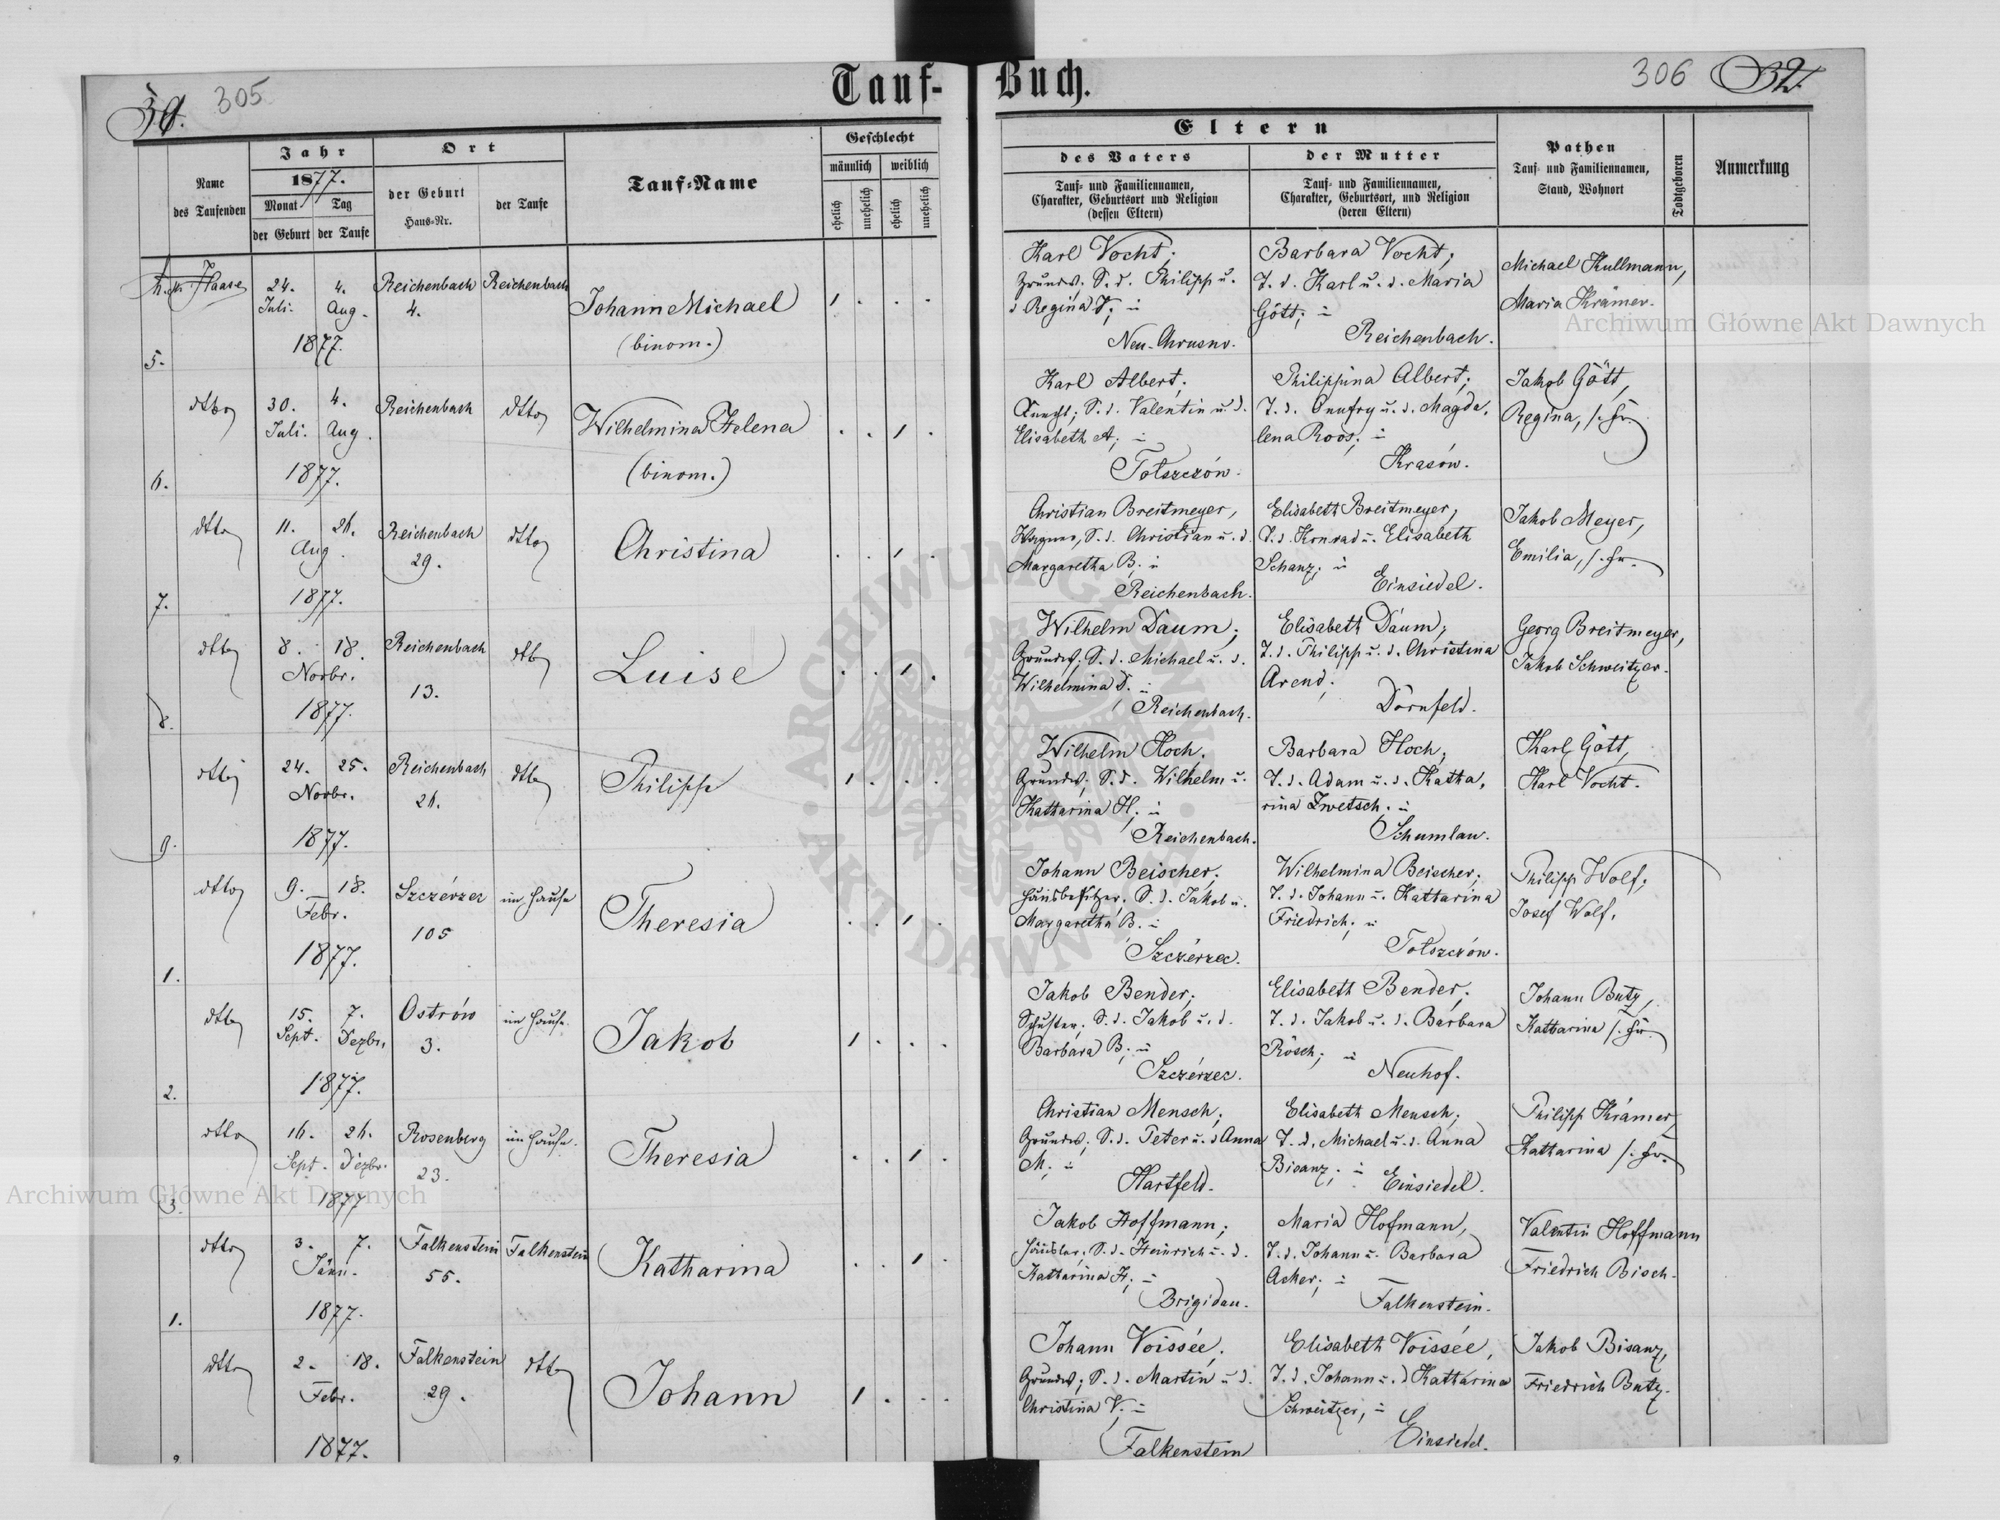 30. 305
Tauf-Buch.
306 32.
Name
des Taufenden
Jahr
1877.
Monat Tag
der Geburt der Taufe
Ort
der Geburt
Haus-Nr.
der Taufe
Tauf-Name
Geschlecht
männlich weiblich
ehelich unehelich ehelich unehelich
Eltern
des Vaters
Tauf- und Familiennamen,
Charakter, Geburtsort und Religion
(dessen Eltern)
der Mutter
Tauf- und Familiennamen,
Charakter, Geburtsort, und Religion
(deren Eltern)
Pathen
Tauf- und Familiennamen,
Stand, Wohnort
Todtgeboren
Anmerkung
5.
Haase
24. 4.
Juli. Aug.
1877.
Reichenbach
4.
Reichenbach
Johann Michael
(binom.)
1 . . .
Karl Vocht;
Grundw. S. d. Philipp u.
d Regina V;
Neu-Chrusno.
Barbara Vocht;
T. d. Karl u. d. Maria
Gött;
Reichenbach.
Michael Kullmann,
Maria Krämer.
6.
dtto
30. 4.
Juli. Aug.
1877.
Reichenbach
dtto
Wilhelmina Helena
(binom.)
. . 1 .
Karl Albert;
Knecht; S. d. Valentin u. d.
Elisabeth A;
Tolszczów.
Philippina Albert;
T. d. Onufry u. d. Magda,
lena Roos;
Krasów.
Jakob Gött,
Regina, s. Fr.
7.
dtto
11. 26.
Aug.
1877.
Reichenbach
29.
dtto
Christina
. . 1 .
Christian Breitmeyer,
Wagner, S. d. Christian u. d.
Margaretha B;
Reichenbach.
Elisabeth Breitmeyer;
T. d. Konrad u. Elisabeth
Schanz;
Einsiedel.
Jakob Meyer,
Emilia, s. Fr.
8.
dtto
8. 18.
Novbr.
1877.
Reichenbach
13.
dtto
Luise
. . 1 .
Wilhelm Daum;
Grundw; S. d. Michael u. d.
Wilhelmina D.
Reichenbach.
Elisabeth Daum;
T. d. Philipp u. d. Christina
Arend;
Dornfeld.
Georg Breitmeyer,
Jakob Schweitzer.
9.
dtto
24. 25.
Novbr.
1877.
Reichenbach
26.
dtto
Philipp
1 . . .
Wilhelm Hoch;
Grundw; S. d. Wilhelm u.
Katharina H;
Reichenbach.
Barbara Hoch;
T. d. Adam u. d. Katha,
rina Zwetsch;
Schumlau.
Karl Gött,
Karl Vocht.
1.
dtto
9. 18.
Febr.
1877.
Szczérzec
105
im Hause
Theresia
. . 1 .
Johann Beischer;
Hausbesitzer; S. d. Jakob u.
Margaretha B.
Szczérzec.
Wilhelmina Beischer;
T. d. Johann u. Katharina
Friedrich;
Tolszczów.
Philipp Wolf;
Josef Wolf.
2.
dtto
15. 7.
Sept. Dezbr.
1877.
Ostrów
3.
im Hause.
Jakob
1 . . .
Jakob Bender;
Schuster; S. d. Jakob u. d.
Barbara B;
Szczérzec.
Elisabeth Bender;
T. d. Jakob u. d. Barbara
Rösch;
Neuhof.
Johann Butz,
Katharina s. Fr.
3.
dtto
16. 26.
Sept. Dezbr.
1877
Rosenberg
23.
im Hause.
Theresia
. . 1 .
Christian Mensch;
Grundw; S. d. Peter u. d Anna
M;
Hartfeld.
Elisabeth Mensch;
T. d. Michael u. d. Anna
Bisanz;
Einsiedel.
Philipp Krämer,
Katharina s. Fr.
1.
dtto
3. 7.
Jänn.
1877.
Falkenstein
55.
Falkenstein
Katharina
. . 1 .
Jakob Hoffmann;
Häusler; S. d. Heinrich u. d.
Katharina H;
Brigidau.
Maria Hofmann,
T. d. Johann u. Barbara
Acker;
Falkenstein.
Valentin Hoffmann
Friedrich Bisch.
2.
dtto
2. 18.
Febr.
1877.
Falkenstein
29.
dtto
Johann
1 . . .
Johann Voissée;
Grundw; S. d. Martin u d.
Christina V.
Falkenstein
Elisabeth Voissée,
T. d. Johann u. d Katharina
Schweitzer,
Einsiedel.
Jakob Bisanz,
Friedrich Butz.
Archiwum Główne Akt Dawnych
Archiwum Główne Akt Dawnych